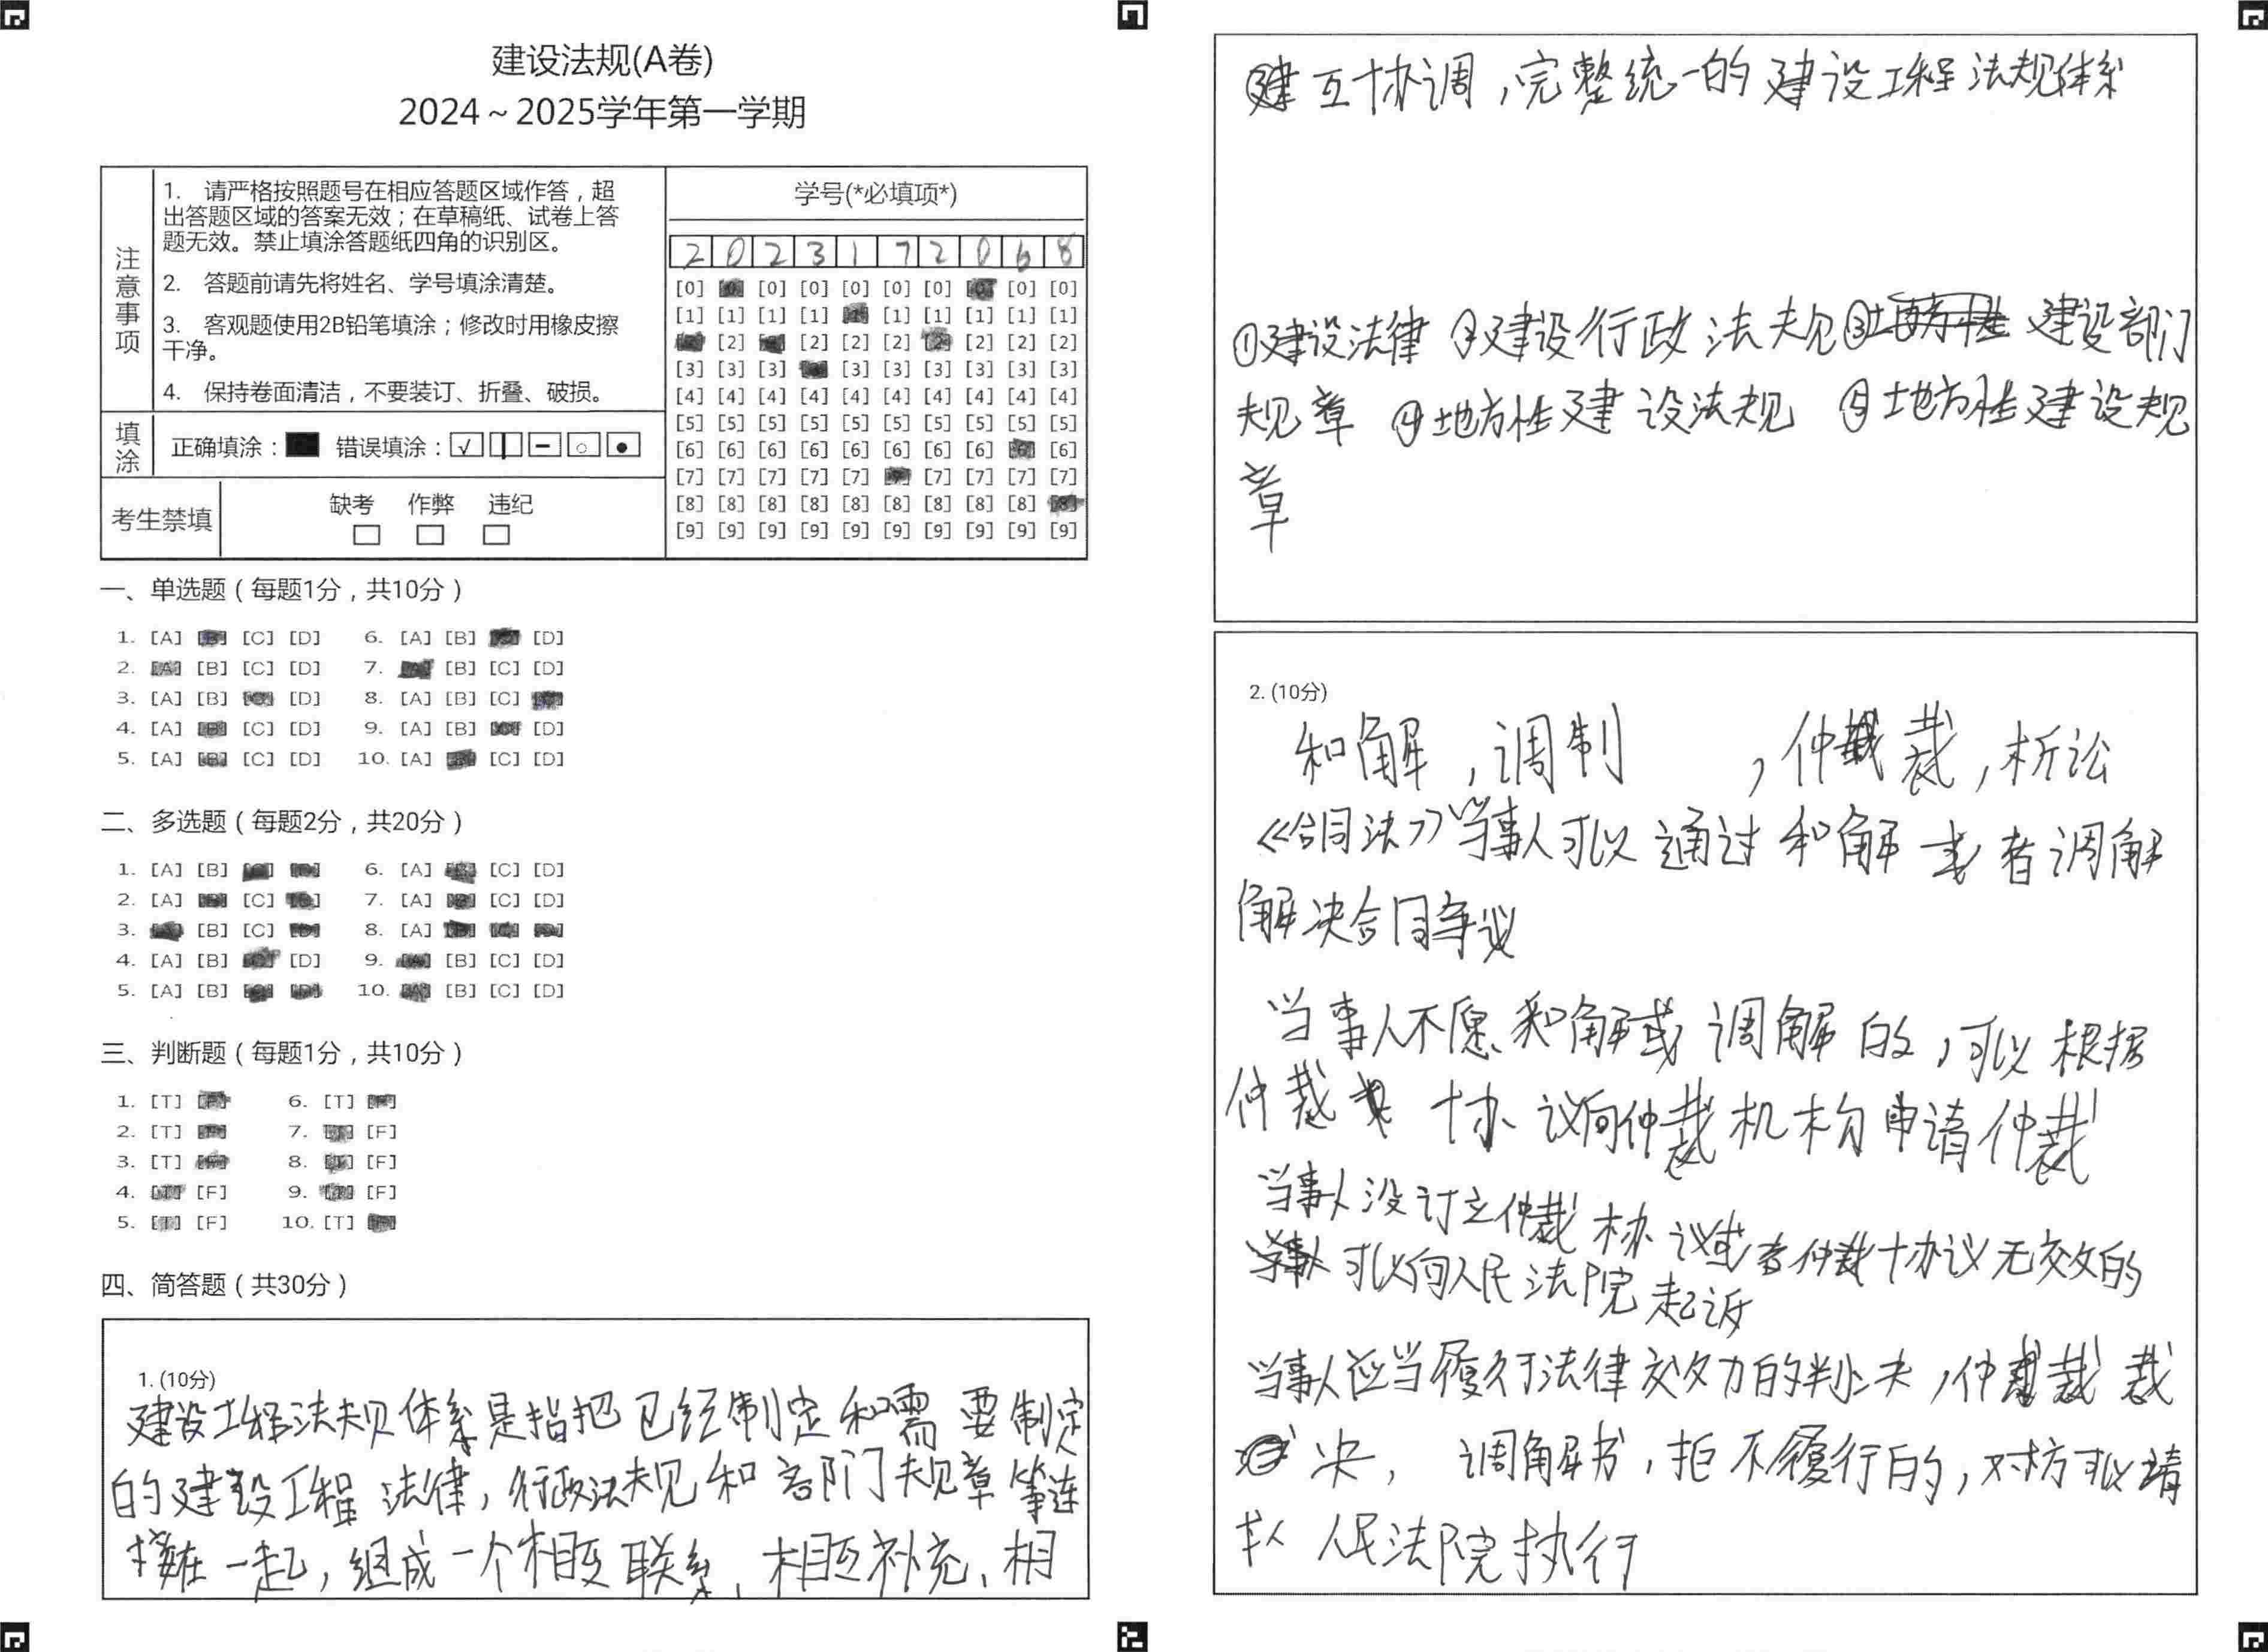 建设法规(A卷)
2024～2025学年第一学期
注意事项
1. 请严格按照题号在相应答题区域作答，超
出答题区域的答案无效；在草稿纸、试卷上答
题无效。禁止填涂答题纸四角的识别区。
2. 答题前请先将姓名、学号填涂清楚。
3. 客观题使用2B铅笔填涂；修改时用橡皮擦
干净。
4. 保持卷面清洁，不要装订、折叠、破损。
填涂
正确填涂： 错误填涂：
考生禁填
缺考 作弊 违纪
学号(*必填项*)
2 0 2 3 1 7 2 0 6 8
[0] [0] [0] [0] [0] [0] [0] [0]
[1] [1] [1] [1] [1] [1] [1] [1] [1]
[2] [2] [2] [2] [2] [2] [2] [2]
[3] [3] [3] [3] [3] [3] [3] [3] [3]
[4] [4] [4] [4] [4] [4] [4] [4] [4] [4]
[5] [5] [5] [5] [5] [5] [5] [5] [5] [5]
[6] [6] [6] [6] [6] [6] [6] [6] [6] [6]
[7] [7] [7] [7] [7] [7] [7] [7] [7]
[8] [8] [8] [8] [8] [8] [8] [8] [8] [8]
[9] [9] [9] [9] [9] [9] [9] [9] [9] [9]
一、单选题（每题1分，共10分）
1. [A] [B] [C] [D] 6. [A] [B] [D]
2. [A] [B] [C] [D] 7. [A] [B] [C] [D]
3. [A] [B] [C] [D] 8. [A] [B] [C]
4. [A] [B] [C] [D] 9. [A] [B] [C] [D]
5. [A] [B] [C] [D] 10. [A] [B] [C] [D]
二、多选题（每题2分，共20分）
1. [A] [B] 6. [A] [B] [C] [D]
2. [A] [C] 7. [A] [B] [C] [D]
3. [B] [C] 8. [A]
4. [A] [B] [D] 9. [A] [B] [C] [D]
5. [A] [B] 10. [A] [B] [C] [D]
三、判断题（每题1分，共10分）
1. [T] [F] 6. [T] [F]
2. [T] [F] 7. [T] [F]
3. [T] [F] 8. [T] [F]
4. [T] [F] 9. [T] [F]
5. [T] [F] 10. [T] [F]
四、简答题（共30分）
1. (10分)
建设工程法规体系是指把已经制定和需要制定
的建设工程法律，行政法规和部门规章等连
接在一起，组成一个相互联系、相互补充、相
互协调，完整统一的建设工程法规体系
①建设法律 ②建设行政法规③建设部门
规章 ④地方性建设法规 ⑤地方性建设规
章
2. (10分)
和解，调制 ，仲裁，析讼
《合同法》当事人可以通过和解或者调解
解决合同争议
当事人不愿和解或调解的，可以根据
仲裁协议向仲裁机构申请仲裁
当事人没订立仲裁协议或者仲裁协议无效的
可以向人民法院起诉
当事人应当履行法律效力的判决，仲裁裁
决，调解书，拒不履行的，对方可以请
求人民法院执行